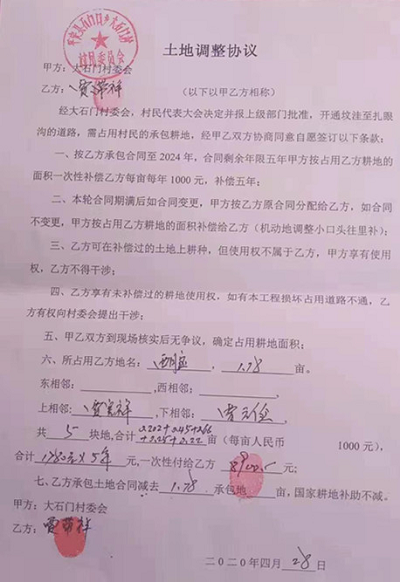 土地调整协议
村民委员会
甲方：大石门村委会
乙方：贾 祥 （以下以甲乙方相称）
经大石门村委会，村民代表大会决定并报上级部门批准，开通坟洼至扎眼
沟的道路，需占用村民的承包耕地，经甲乙方协商同意自愿签订以下条款：
一、按乙方承包合同至 2024 年，合同剩余年限五年甲方按占用乙方耕地的
面积一次性补偿乙方每亩每年 1000 元，补偿五年；
二、本轮合同期满后如合同变更，甲方按乙方原合同分配给乙方，如合同
不变更，甲方按占用乙方耕地的面积补偿给乙方（机动地调整小口头往里补）；
三、乙方可在补偿过的土地上耕种，但使用权不属于乙方，甲方享有使用
权，乙方不得干涉；
四、乙方享有未补偿过的耕地使用权，如有本工程损坏占用道路不通，乙
方有权向村委会提出干涉；
五、甲乙双方到现场核实后无争议，确定占用耕地面积；
六、所占用乙方地名： ，1.78 亩。
东相邻： ,西相邻： ，
上相邻：贾 祥 ,下相邻：贾元 。
共 5 块地,合计 亩（每亩人民币 1000 元），
合计 1780元×5年 元,一次性付给乙方 8900 元；
七、乙方承包土地合同减去 1.78 承包地 亩，国家耕地补助不减。
甲方：大石门村委会
乙方：贾 祥
二〇二〇年四月 28 日